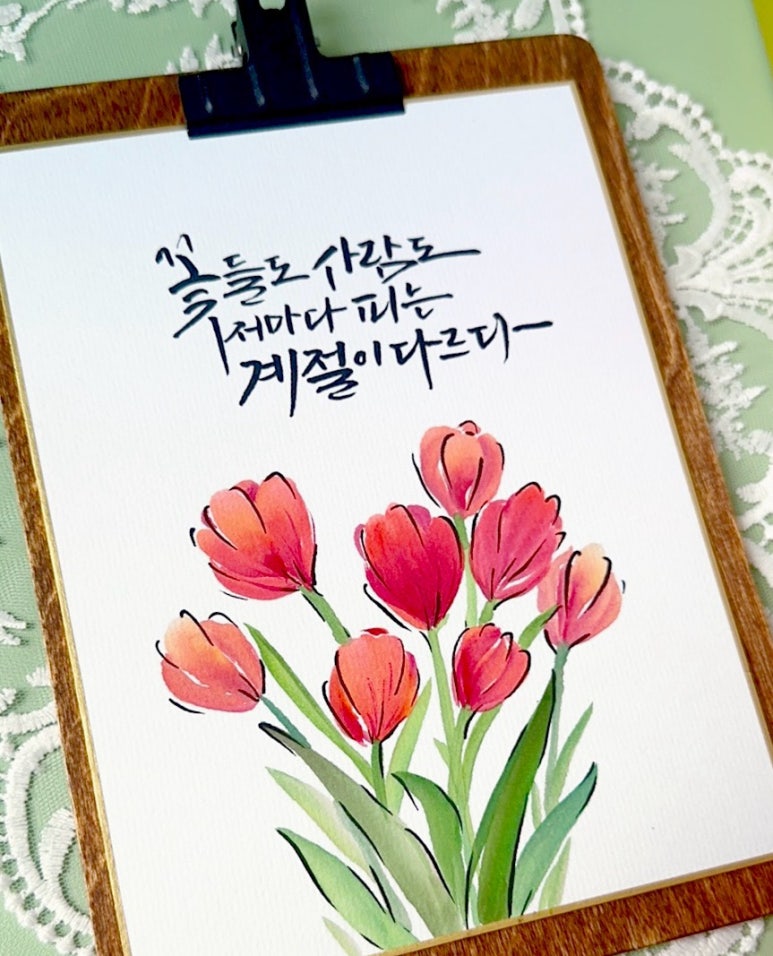 꽃들도 사람도
저마다 피는
계절이 다르다